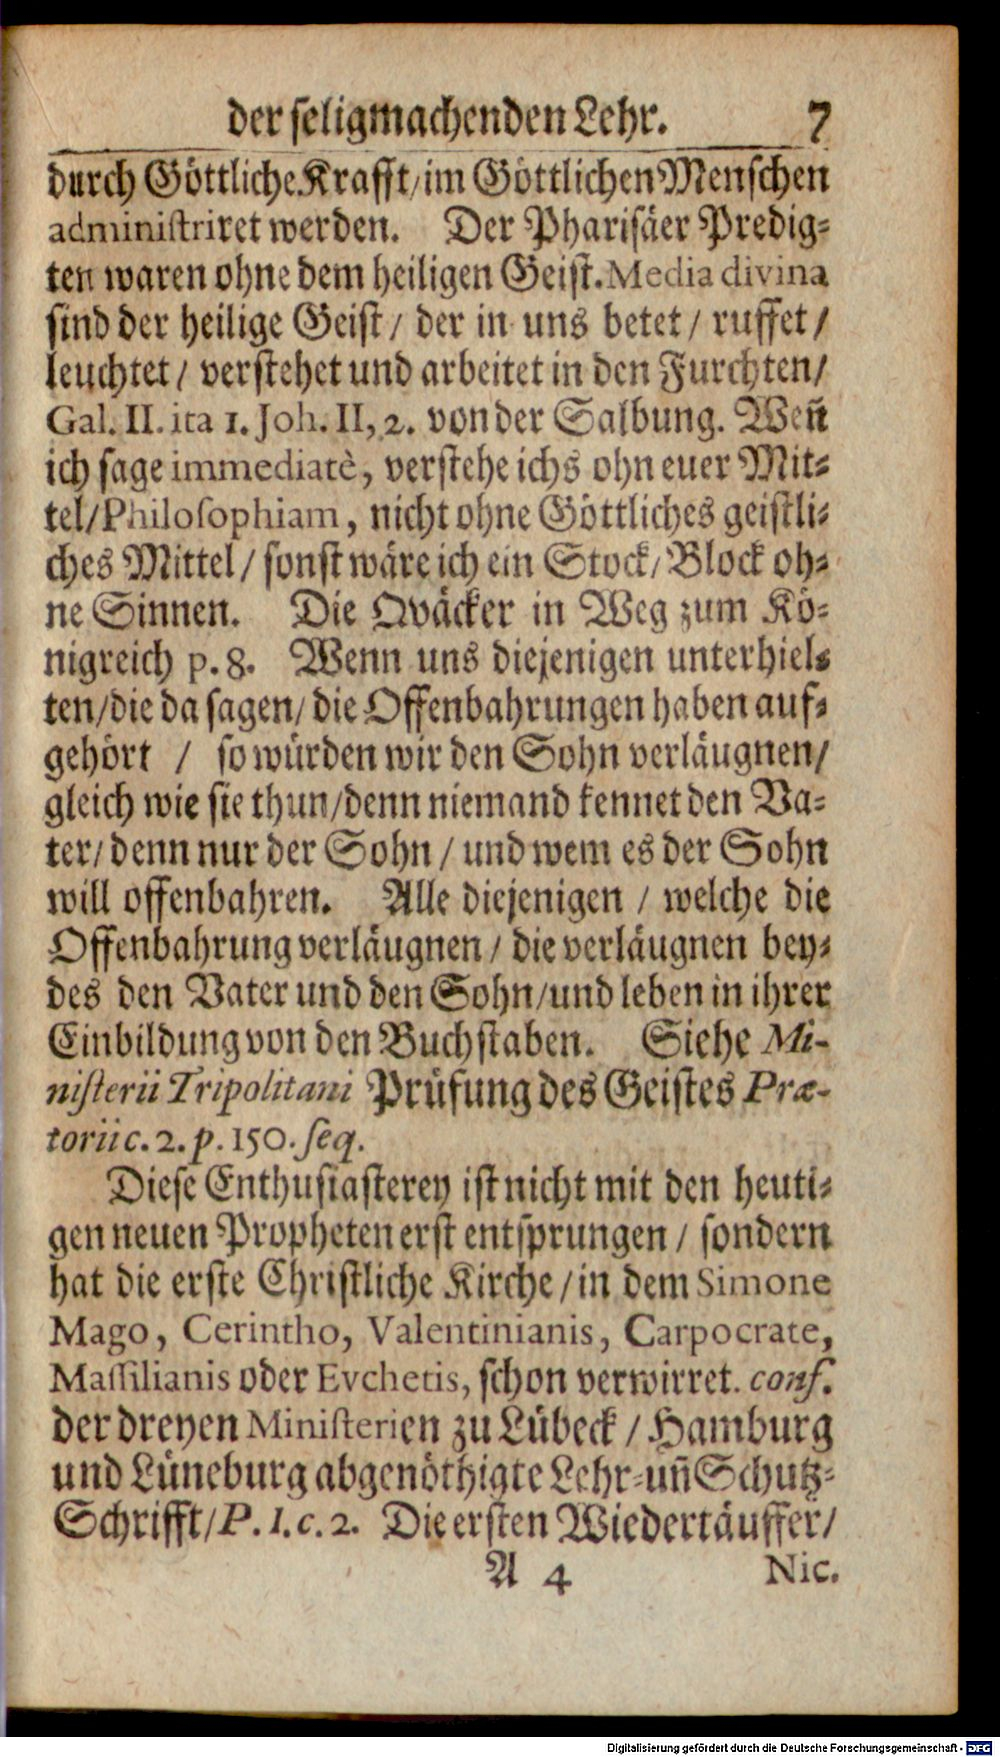 der seligmachenden Lehr. 7
durch Göttliche Krafft/im Göttlichen Menschen
administriret werden. Der Pharisäer Predig-
ten waren ohne dem heiligen Geist. Media divina
sind der heilige Geist/ der in uns betet/ ruffet/
leuchtet/ verstehet und arbeitet in den Furchten/
Gal. II. ita 1. Joh. II, 2. von der Salbung. Weñ
ich sage immediatè, verstehe ichs ohn euer Mit-
tel/Philosophiam, nicht ohne Göttliches geistli-
ches Mittel/ sonst wäre ich ein Stock/ Block oh-
ne Sinnen. Die Qväcker in Weg zum Kö-
nigreich p. 8. Wenn uns diejenigen unterhiel-
ten/die da sagen/ die Offenbahrungen haben auf-
gehört / so würden wir den Sohn verläugnen/
gleich wie sie thun/denn niemand kennet den Va-
ter/ denn nur der Sohn/ und wem es der Sohn
will offenbahren. Alle diejenigen / welche die
Offenbahrung verläugnen/ die verläugnen bey-
des den Vater und den Sohn/und leben in ihrer
Einbildung von den Buchstaben. Siehe Mi-
nisterii Tripolitani Prüfung des Geistes Præ-
torii c. 2. p. 150. seq.
Diese Enthusiasterey ist nicht mit den heuti-
gen neuen Propheten erst entsprungen/ sondern
hat die erste Christliche Kirche/in dem Simone
Mago, Cerintho, Valentinianis, Carpocrate,
Massilianis oder Evchetis, schon verwirret. conf.
der dreyen Ministerien zu Lübeck/ Hamburg
und Lüneburg abgenöthigte Lehr-uñ Schutz-
Schrifft/P. I. c. 2. Die ersten Wiedertäuffer/
A 4 Nic.
Digitalisierung gefördert durch die Deutsche Forschungsgemeinschaft - DFG